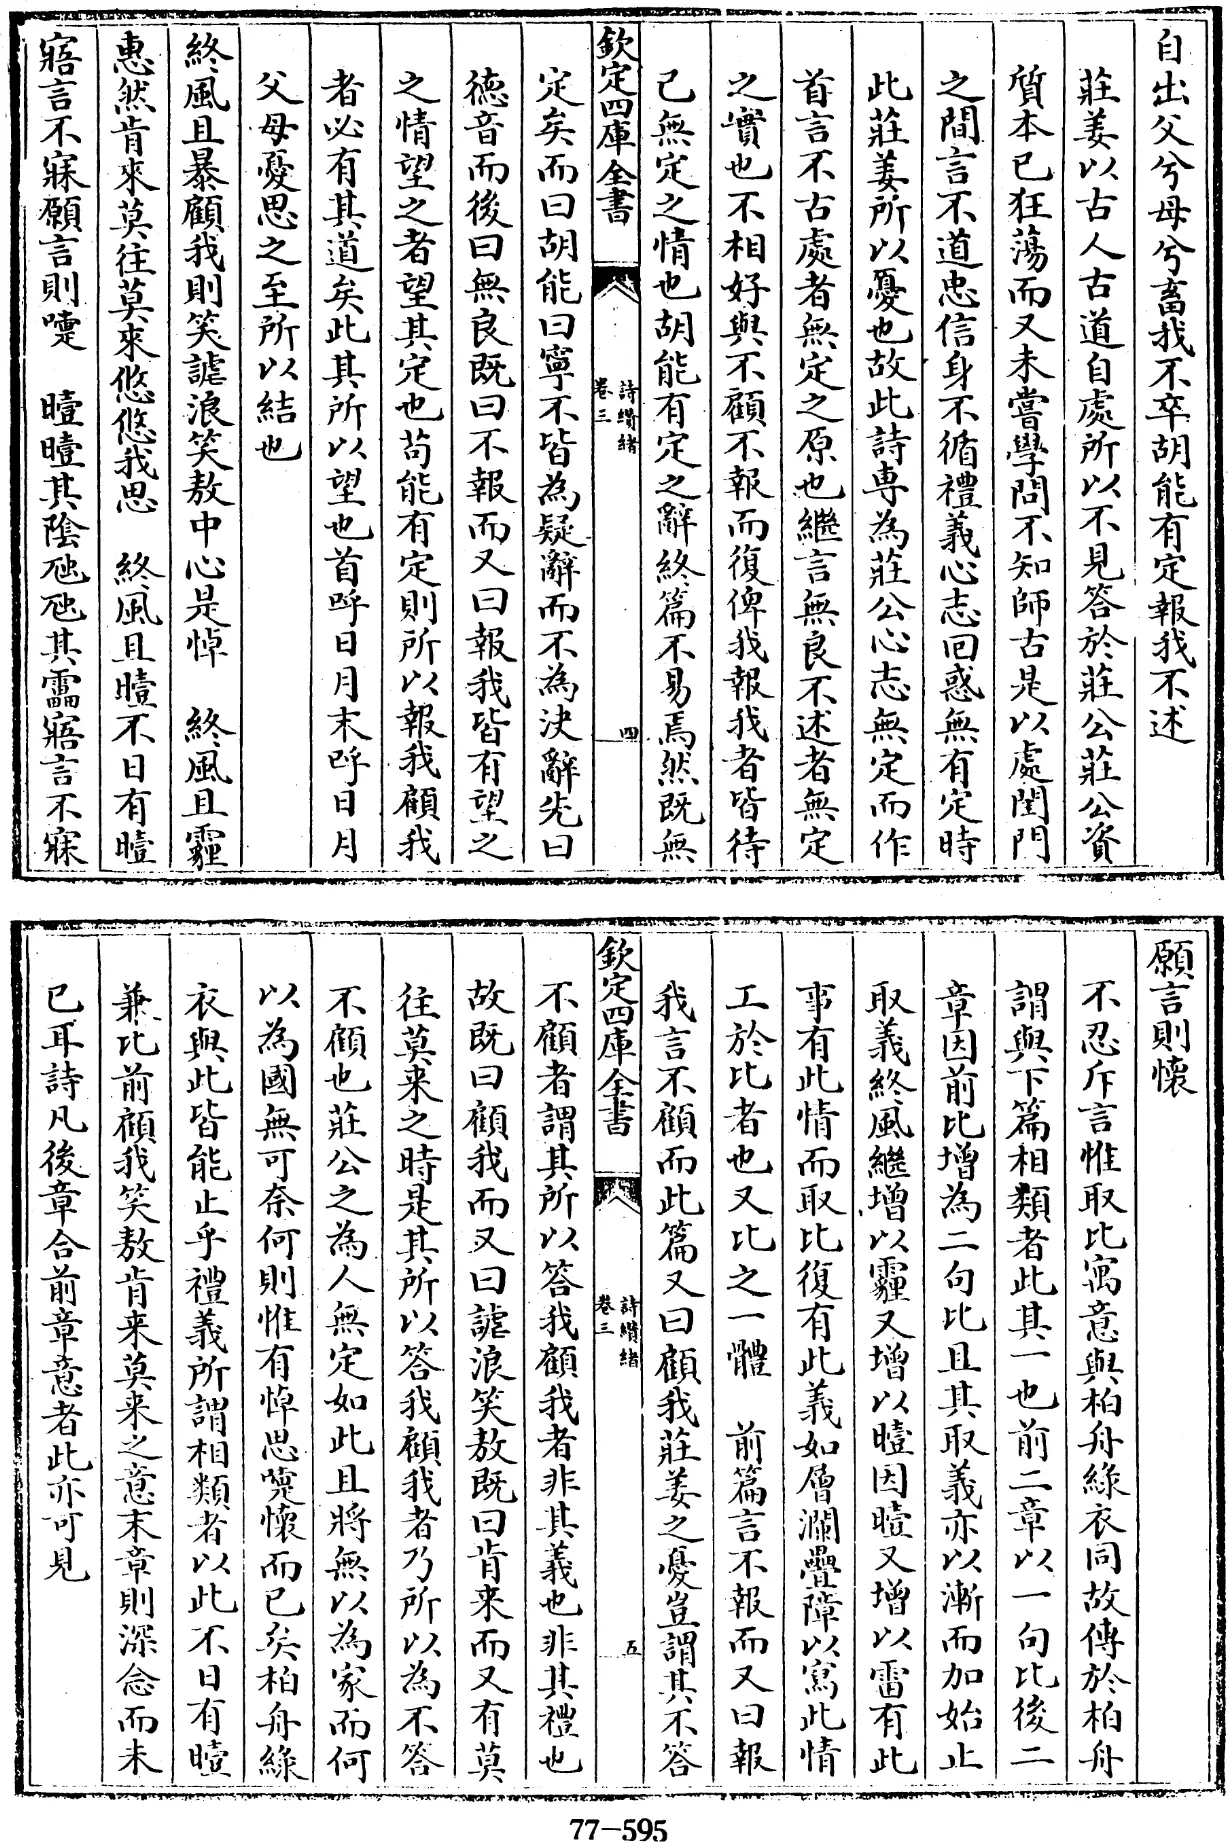 自出父兮母兮畜我不卒胡能有定報我不述
莊姜以古人古道自處所以不見答於莊公莊公資
質本已狂蕩而又未嘗學問不知師古是以處閨門
之間言不道忠信身不循禮義心志回惑無有定時
此莊姜所以憂也故此詩専為莊公心志無定而作
首言不古處者無定之原也繼言無良不述者無定
之實也不相好與不顧不報而復俾我報我者皆待
己無定之情也胡能有定之辭終篇不易焉然既無
欽定四庫全書
詩纘緒
卷三
四
定矣而曰胡能曰寧不皆為疑辭而不為決辭先曰
德音而後曰無良既曰不報而又曰報我皆有望之
之情望之者望其定也苟能有定則所以報我顧我
者必有其道矣此其所以望也首呼日月末呼日月
父母憂思之至所以結也
終風且暴顧我則笑謔浪笑敖中心是悼　終風且霾
惠然肯來莫往莫來悠悠我思　終風且曀不日有曀
寤言不寐願言則嚏　曀曀其陰虺虺其靁寤言不寐
願言則懷
不忍斥言惟取比寓意與柏舟綠衣同故傳於柏舟
謂與下篇相類者此其一也前二章以一句比後二
章因前比增為二句比且其取義亦以漸而加始止
取義終風繼增以霾又增以曀因曀又增以雷有此
事有此情而取比復有此義如層瀾疊障以寫此情
工於比者也又比之一體　前篇言不報而又曰報
我言不顧而此篇又曰顧我莊姜之憂豈謂其不答
欽定四庫全書
詩纘緒
卷三
五
不顧者謂其所以答我顧我者非其義也非其禮也
故既曰顧我而又曰謔浪笑敖既曰肯来而又有莫
往莫来之時是其所以答我顧我者乃所以為不答
不顧也莊公之為人無定如此且將無以為家而何
以為國無可奈何則惟有悼思嚏懷而已矣柏舟綠
衣與此皆能止乎禮義所謂相類者以此不日有曀
兼比前顧我笑敖肯来莫来之意末章則深念而未
已耳詩凡後章合前章意者此亦可見
77-595